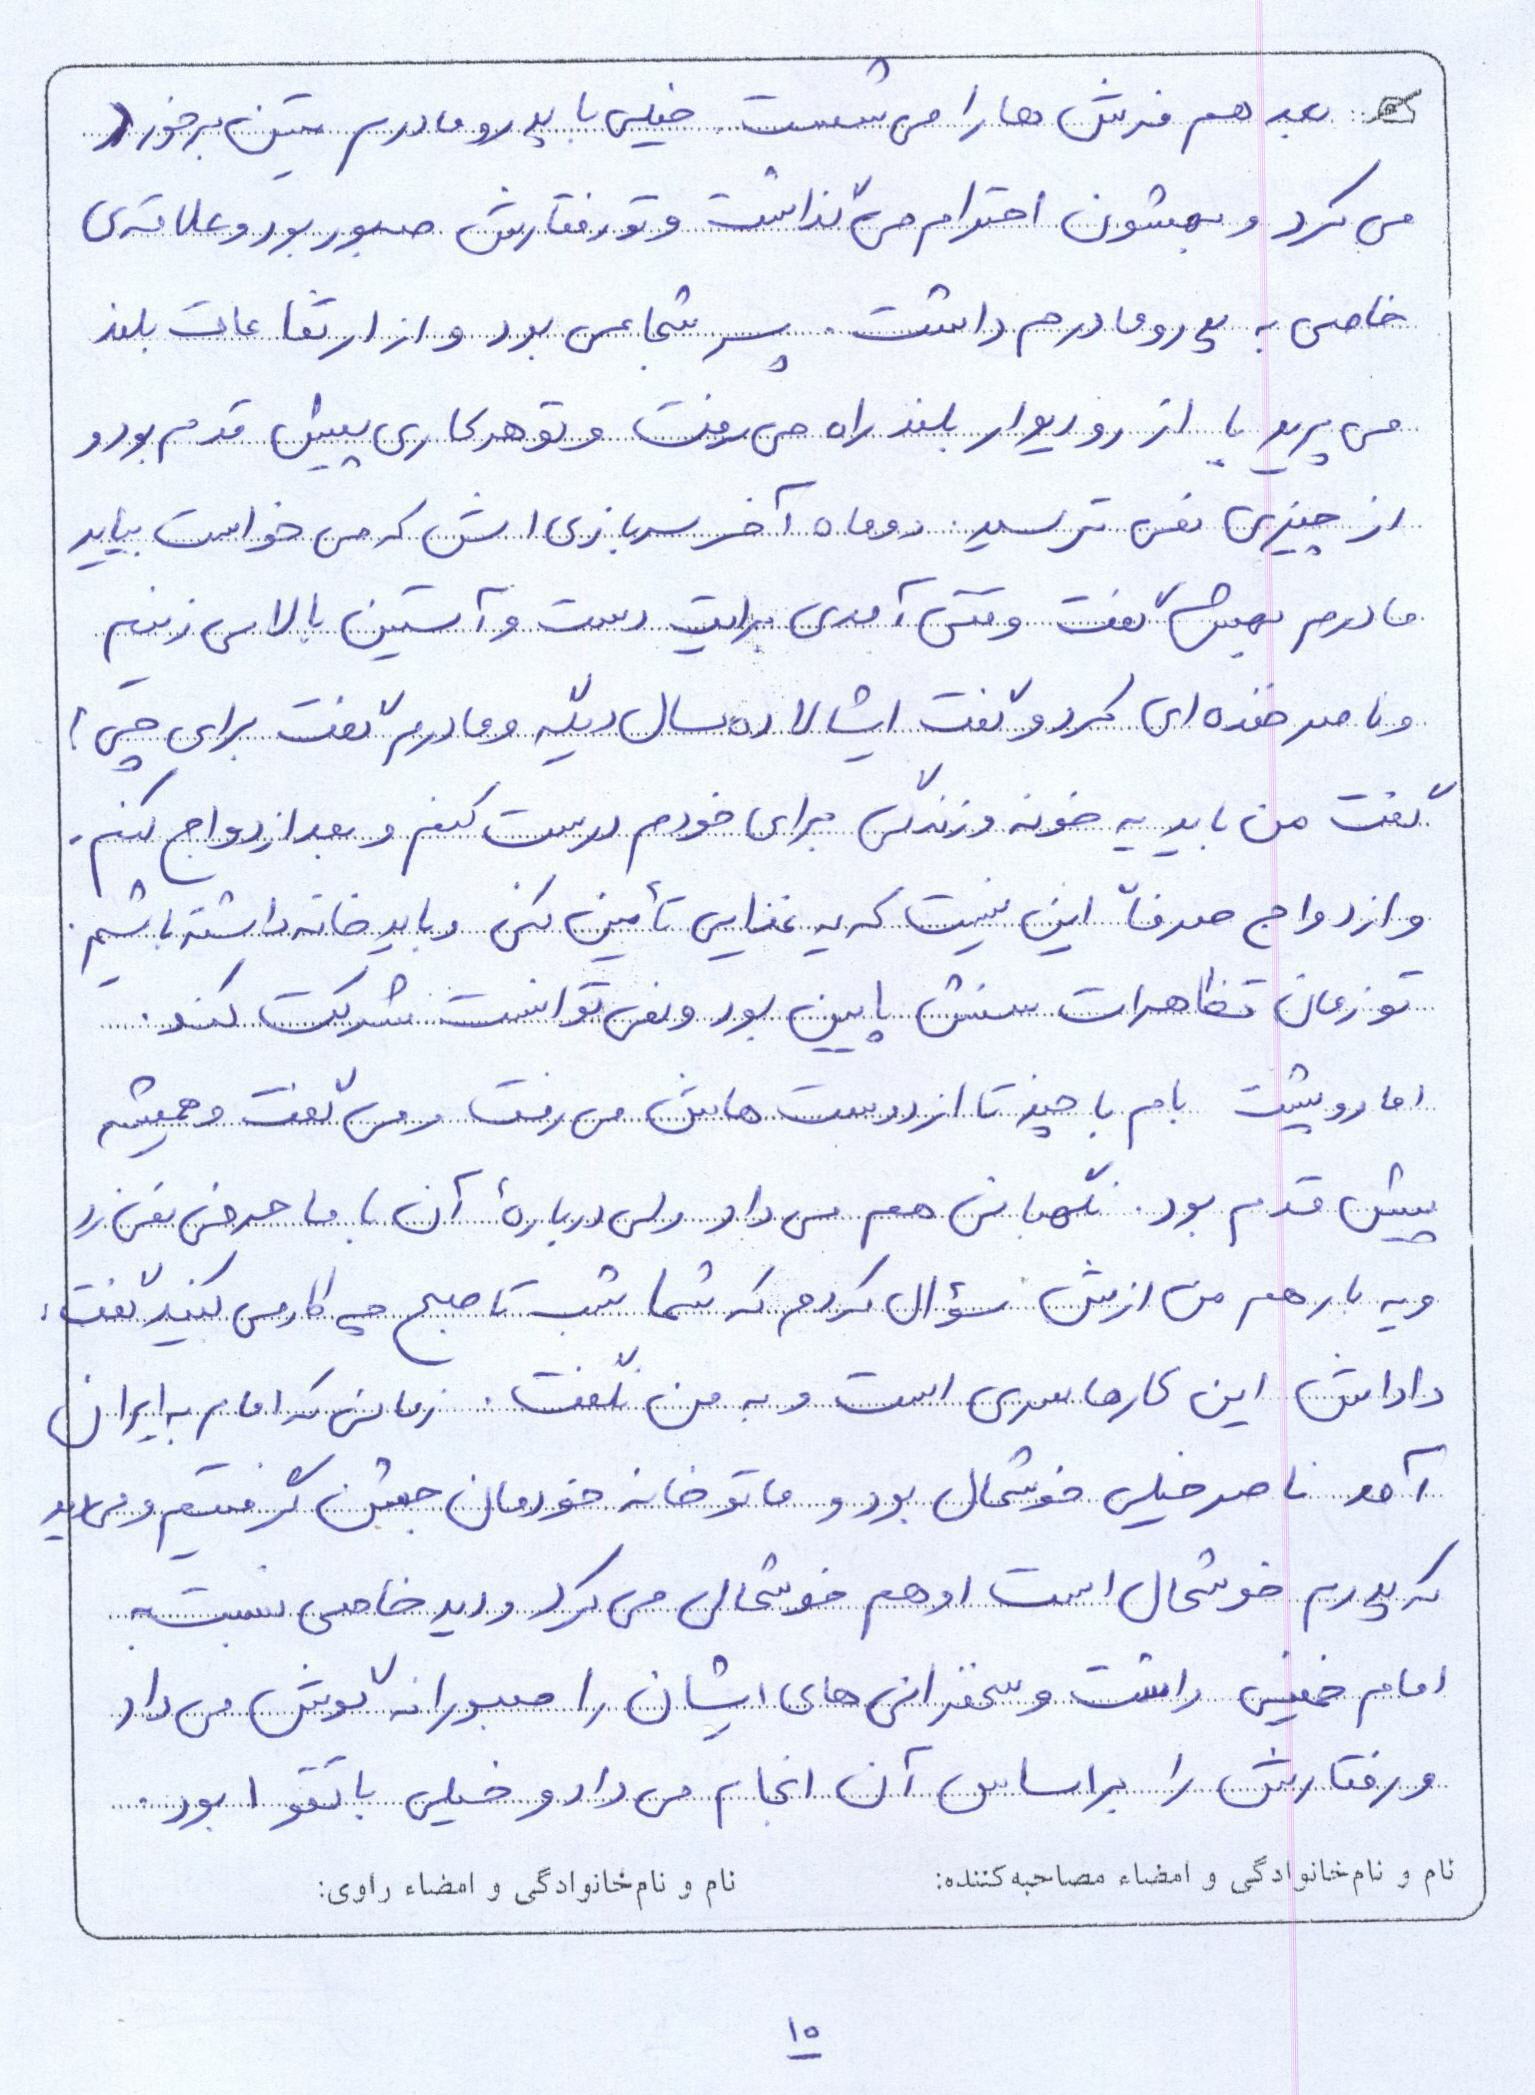 بعد هم فرش ها را می شست. خیلی با پدر و مادرم متین برخورد
می کرد و بهشون احترام می گذاشت و تو رفتارش صبور بود و علاقه‌ی
خاصی به پدر و مادرم داشت. پسر شجاعی بود و از ارتفاعات بلند
می پرید یا از رو دیوار بلند راه می رفت و تو هر کاری پیش قدم بود و
از چیزی نمی ترسید. دو ماه آخر سربازی اش که می خواست بیاید
مادرم بهش گفت وقتی آمدی برایت دست و آستین بالا می زنیم
و ناصر خنده ای کرد و گفت ایشالا ده سال دیگه و مادرم گفت برای چی؟
گفت من باید یه خونه و زندگی برای خودم درست کنم و بعد ازدواج کنم.
و ازدواج صرفاً این نیست که یه غذایی تأمین کنی و باید خانه داشته باشیم.
تو زمان تظاهرات سنش پایین بود و نمی توانست شرکت کند.
اما رو پشت بام با چند تا از دوست هاش می رفت و می گفت و همیشه
پیش قدم بود. نگهبانی هم می داد ولی دربارهٔ آن با ما حرفی نمی زد
و یه بار هم من ازش سؤال کردم که شما شب تا صبح چه کار می کنید گفت:
داداش این کارها سری است و به من نگفت. زمانی که امام به ایران
آمد ناصر خیلی خوشحال بود و ما تو خانه خودمان جشن گرفتیم و می دید
که پدرم خوشحال است او هم خوشحالی می کرد و دید خاصی نسبت به
امام خمینی داشت و سخنرانی های ایشان را صبورانه گوش می داد
و رفتارش را براساس آن انجام می داد و خیلی با تقوا بود.
نام و نام‌خانوادگی و امضاء مصاحبه‌کننده: نام و نام‌خانوادگی و امضاء راوی:
۱۵